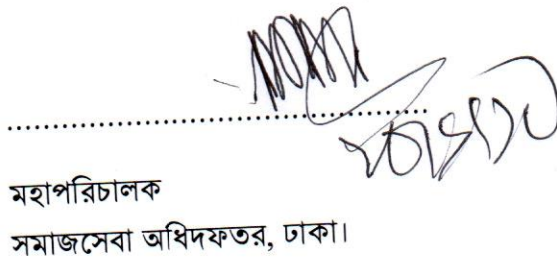 মহাপরিচালক
সমাজসেবা অধিদফতর, ঢাকা।